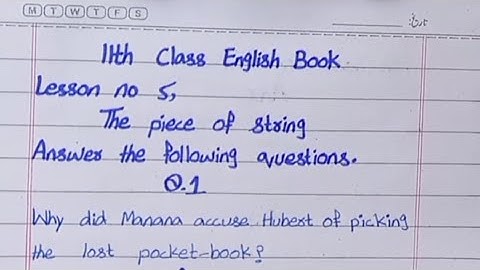 M T W T F S
11th Class English Book
Lesson no 5,
The piece of string
Answer the following questions.
Q.1
Why did Manana accuse Hubert of picking
the lost pocket-book?